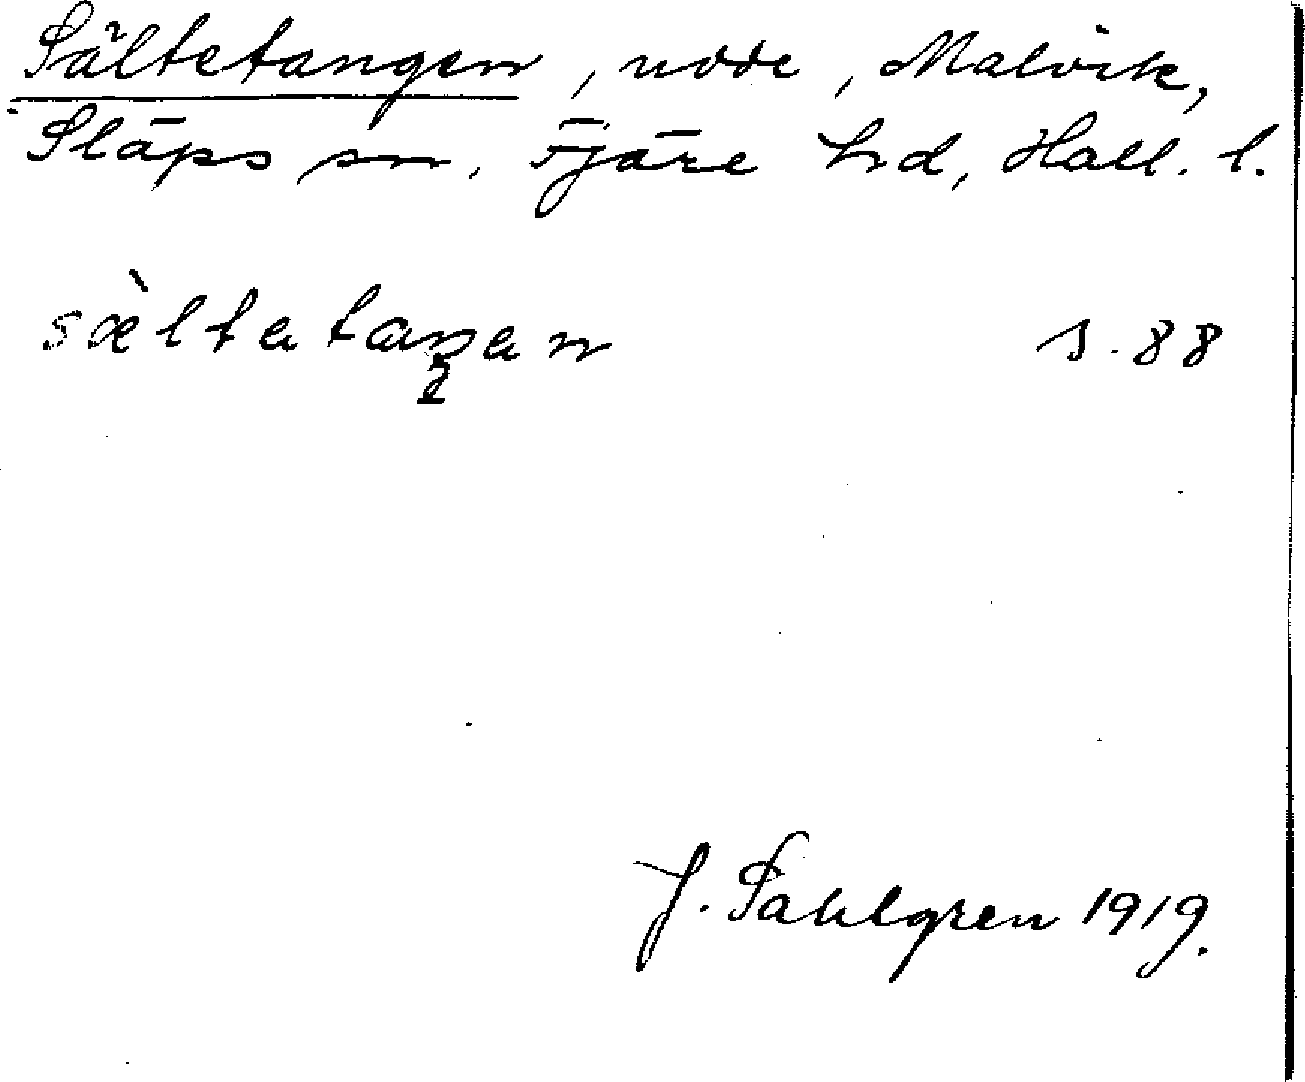 Sältetangen, udde, Malvik,
Släps sn, Fjäre hd, Hall. l.
sæ̀ltataŋan s. 88
J. Sahlgren 1919.